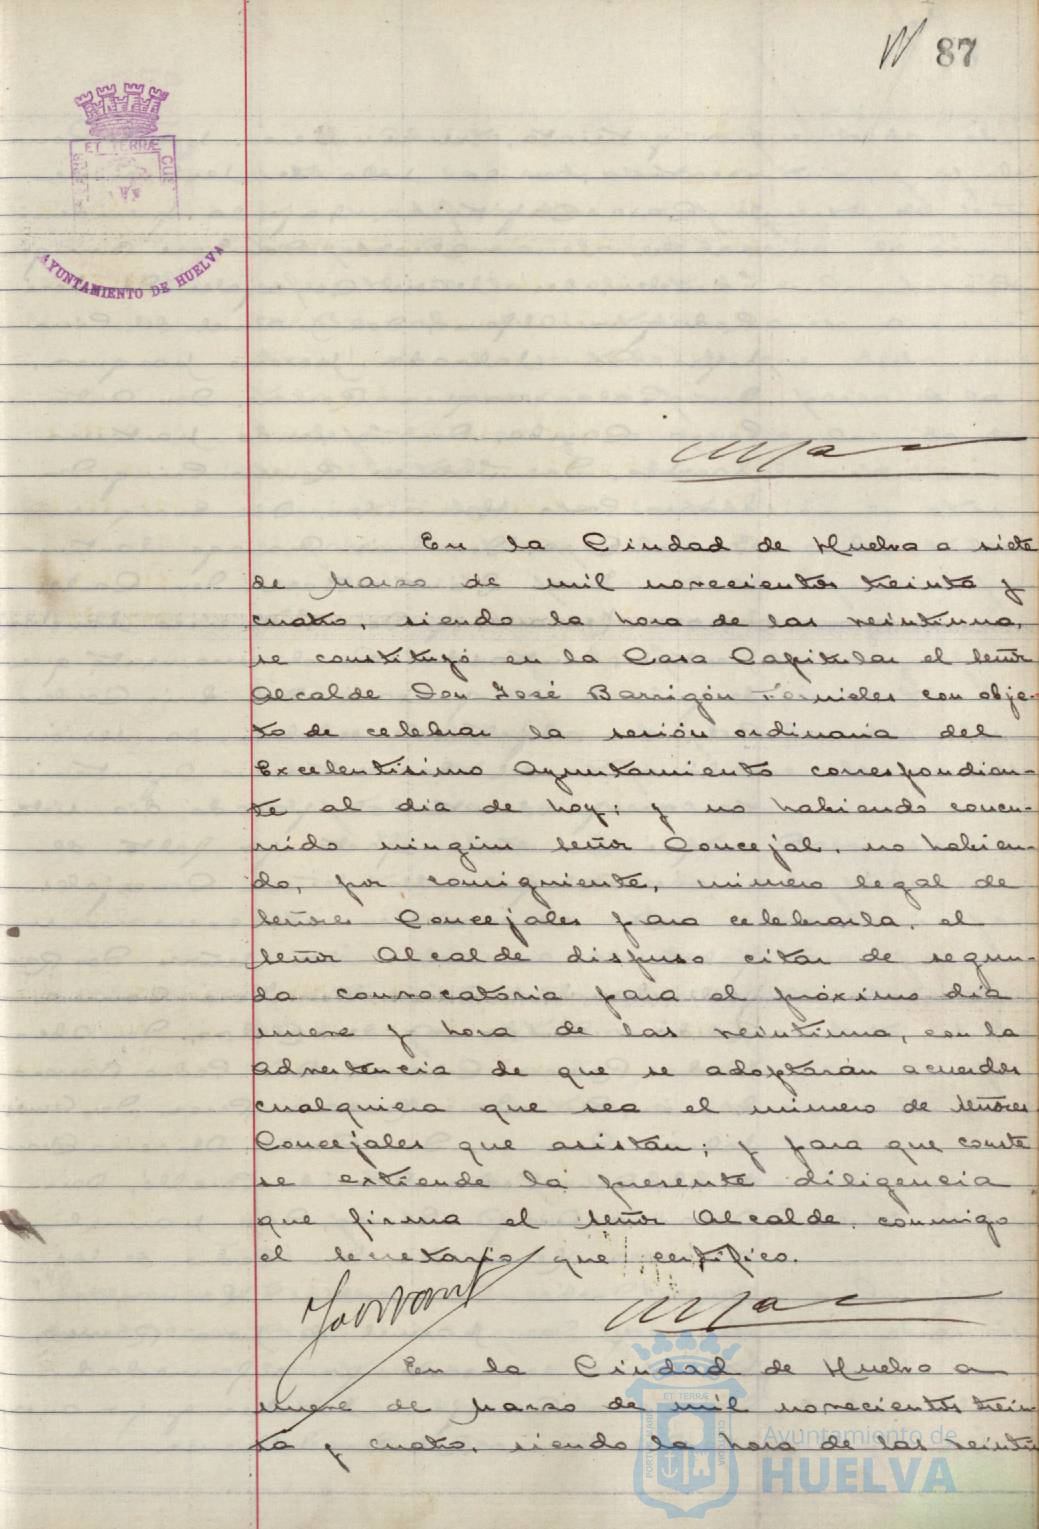 87
ET TERRÆ
AYUNTAMIENTO DE HUELVA
En la Ciudad de Huelva a siete
de Marzo de mil novecientos treinta y
cuatro, siendo la hora de las veintiuna,
se constituyó en la Casa Capitular el Señor
Alcalde Don José Barrigón Fornieles con obje-
to de celebrar la sesión ordinaria del
Excelentísimo Ayuntamiento correspondien-
te al día de hoy; y no habiendo concu-
rrido ningún Señor Concejal, no habien-
do, por consiguiente, número legal de
Señores Concejales para celebrarla, el
Señor Alcalde dispuso citar de segun-
da convocatoria para el próximo día
nueve y hora de las veintiuna, con la
advertencia de que se adoptarán acuerdos
cualquiera que sea el número de Señores
Concejales que asistan; y para que conste
se extiende la presente diligencia
que firma el Señor Alcalde, conmigo
el Secretario, que certifico.
En la Ciudad de Huelva a
nueve de Marzo de mil novecientos trein
ta y cuatro, siendo la hora de las veintiu
Ayuntamiento de
HUELVA